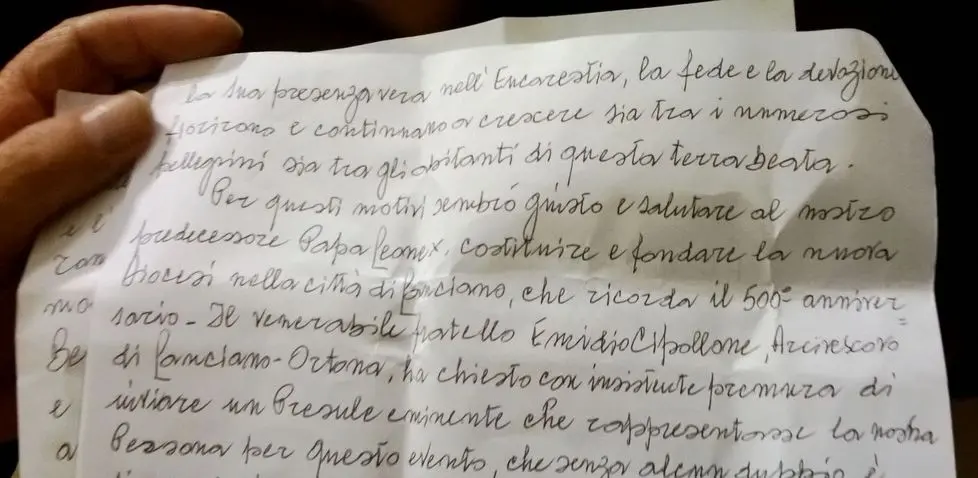 la sua presenza vera nell'Eucarestia, la fede e la devozione
fiorirono e continuano a crescere sia tra i numerosi
pellegrini sia tra gli abitanti di questa terra beata.
Per questi motivi sembrò giusto e salutare al nostro
predecessore Papa Leone X, costituire e fondare la nuova
Diocesi nella città di Lanciano, che ricorda il 500° anniver=
sario - Il venerabile fratello Emidio Cipollone, Arcivescovo
di Lanciano-Ortona, ha chiesto con insistente premura di
inviare un Presule eminente che rappresentasse la nostra
Persona per questo evento, che senza alcun dubbio è